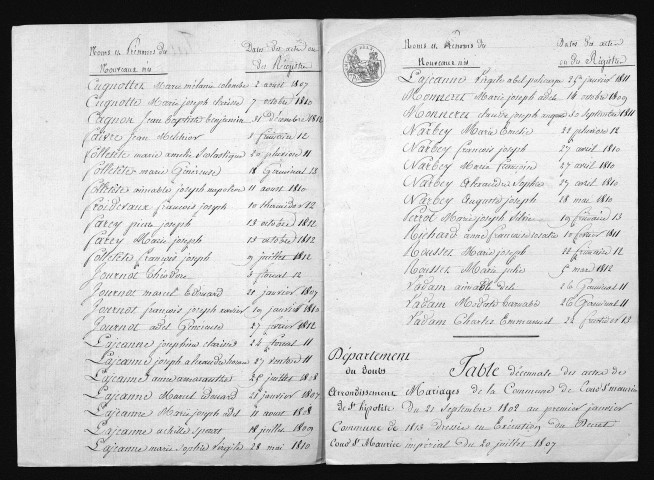 Noms et Prénoms des Nouveaux nés
Dates des actes ou des Registre
Cugnottes Marie mélanie colombe 2 avril 1807
Cugnotte Marie joseph 7 octobre 1810
Cugnon jean baptiste benjamin 31 Decembre 1812
favre jean 8 12
folletete marie amelie Scolastique 20 pluviose 11
folletete marie Généreuse 18 Germinal 13
folletete aimable joseph napoleon 11 aout 1810
froidevaux francois joseph 10 thermidor 12
farey pierre joseph 13 octobre 1812
farey Marie joseph 13 octobre 1812
folletete françois joseph 9 juillet 1812
Journot Théodore 8 floreal 12
Journot marcel Edouard 20 janvier 1807
Journot françois joseph xavier 19 janvier 1810
Journot adel Généreuse 27 fevrier 1812
Lajeanne josephine clarisse 24 floreal 11
Lajeanne joseph alexandre 27 ventose 11
Lajeanne anne 25 juillet 1808
Lajeanne Marcel Edouard 28 janvier 1807
Lajeanne Marie joseph adel 11 aout 1808
Lajeanne achille 18 juillet 1809
Lajeanne marie Sophie Virgile 28 mai 1810
Noms et Prénoms des Nouveaux nés
Dates des actes ou du Registre
Lajeanne Virgile abel 25 janvier 1811
Monneret Marie joseph adel 14 octobre 1809
Monneret claude joseph auguste 30 Septembre 1811
Narbey Marie Emelie 22 pluviose 12
Narbey francois joseph 27 avril 1810
Narbey Marie francoise 27 avril 1810
Narbey Sophie 27 avril 1810
Narbey Auguste joseph 28 mai 1810
Perrol Marie joseph 19 frimaire 13
Richard anne francoise 10 fevrier 1811
Rousses Marie joseph 22 frimaire 12
Rousses Marie julie 5 mai 1812
Vadam aimable adele 26 Germinal 11
Vadam Modeste 26 Germinal 11
Vadam Charles Emmanuel 22 fructidor 13
Département du doubs
Arrondissement de St hipolite
Commune de Cour St Maurice
Table décennale des actes de
Mariages de la Commune de Cour St maurice
du 21 Septembre 1802 au premier janvier
1813 dressée en Exécution du Décret
impérial du 20 juillet 1807